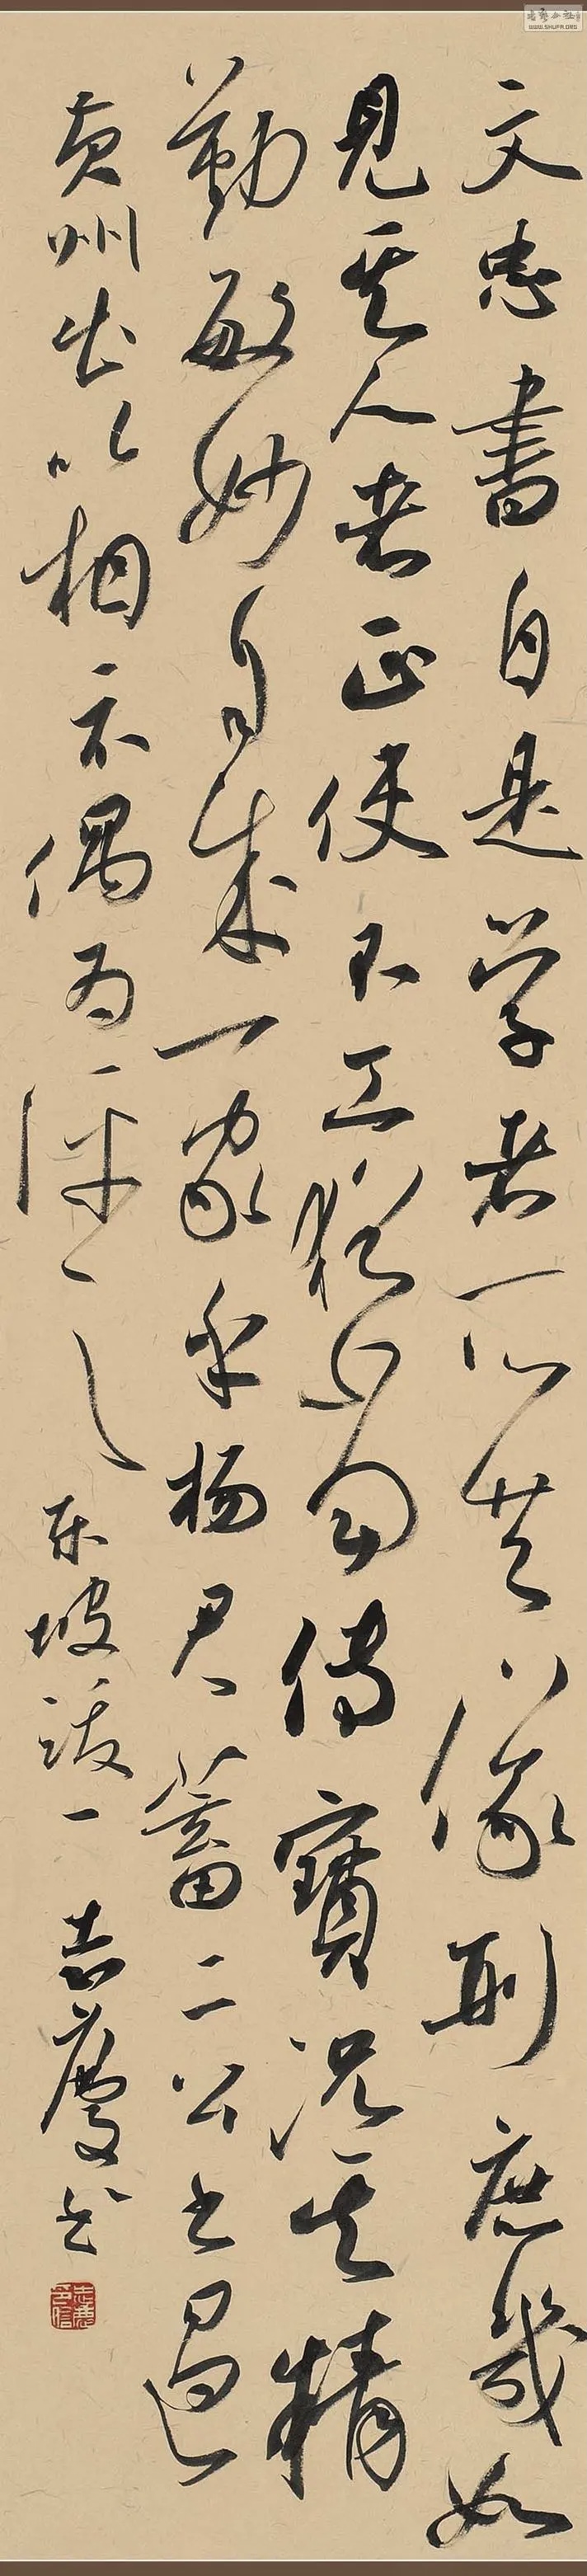 文忠書自是学者所共像刑庶幾如
見其人者正使不工猶當傳寶況其精
勤敏妙自成一家乎杨君蓄二公书過
黄州出以相示偶为评之 东坡跋一 志慶书
WWW.SHUFA.ORG